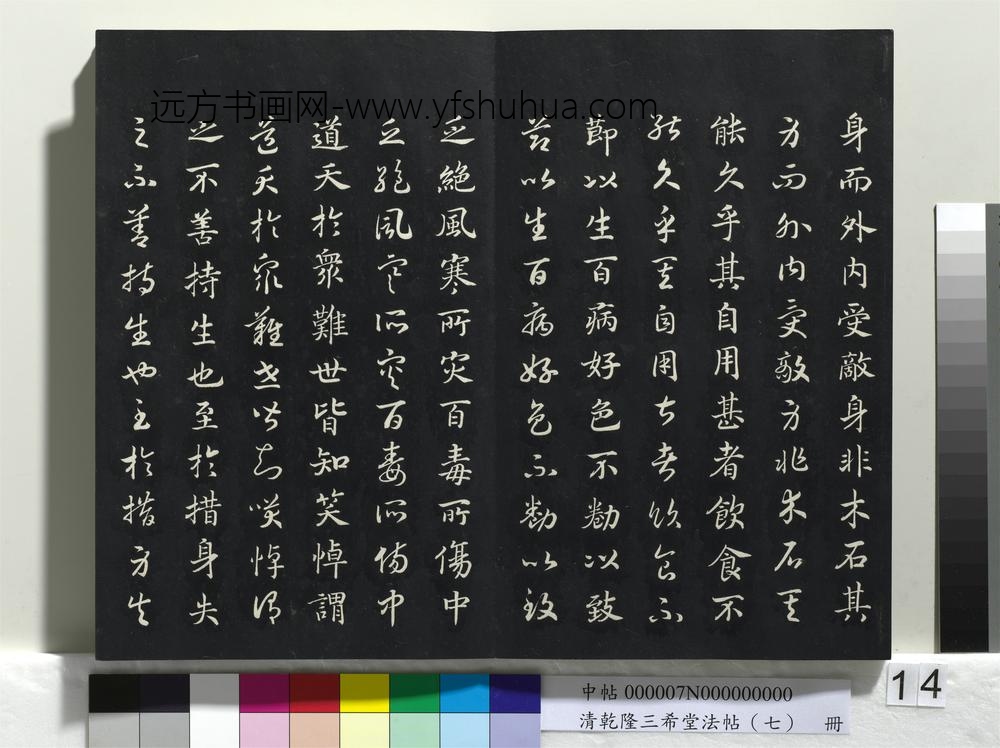 远方书画网-www.yfshuhua.com
身而外内受敵身非木石其
身而外内受敵身非木石其
能久乎其自用甚者飲食不
能久乎其自用甚者飲食不
節以生百病好色不勌以致
節以生百病好色不勌以致
乏絶風寒所災百毒所傷中
乏絶風寒所災百毒所傷中
道夭於衆難世皆知笑悼謂
道夭於衆難世皆知笑悼謂
之不善持生也至於措身失
之不善持生也至於措身失
中帖 000007N000000000
清乾隆三希堂法帖（七） 冊
14